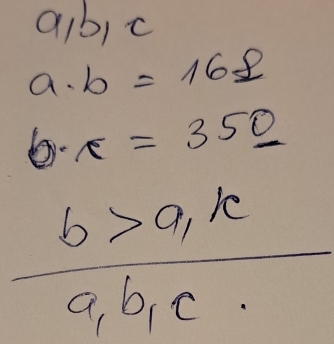 a, b, c
a · b = 168
b · c = 350
b > a, k
a, b, c .